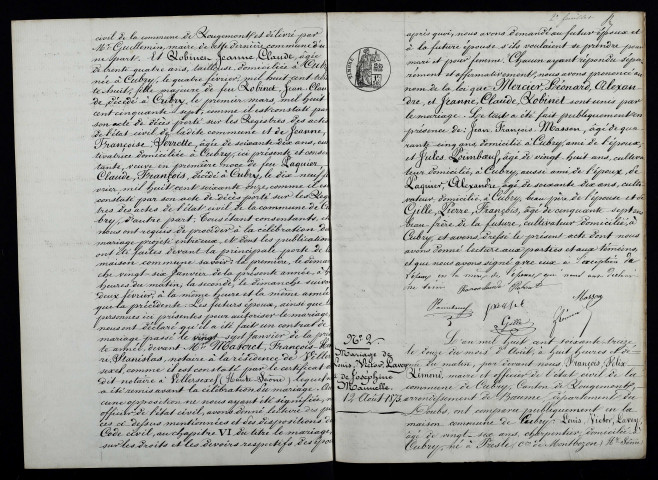 civil de la commune de Rougemont et délivré par
Mr Guillemin, maire de cette dernière commune d'u
ne part. Et Robinet Jeanne, Claude, âgée
de trente quatre ans, tailleuse domiciliée à Cubry
née à Cubry, le quatre février, mil huit cent tren
te huit, fille majeure de feu Robinet, Jean, Claude
décédé à Cubry, le premier mars, mil huit
cent cinquante sept, comme il est constaté par
son acte de décès porté sur les Registres des actes
de l'état civil de ladite commune et de Jeanne,
Françoise âgée de soixante dix ans, cul
tivatrice domiciliée à Cubry, ici présente et consen
tante, veuve en première noce de feu Laquier
Claude, François, décédé à Cubry, le dix neuf
vrier mil huit cent soixante onze, comme il est
constaté par son acte de décès porté sur les Regis
tres des actes de l'état civil de la commune de Cu
bry, d'autre part. Tous étant consentants, et
nous ont requis de procéder à la célébration du
mariage projeté entre eux, et dont les publications
ont été faites devant la principale porte de la
maison commune savoir: la première, le diman
che vingt-six Janvier de la présente année, à
heures du matin, la seconde, le dimanche suivant
deux février, à la même heure et la même année
que la précédente. Les futurs époux, ainsi que
personnes ici présentes pour autoriser le mariage
nous ont déclaré qu'il a été fait un contrat de
mariage passé le vingt sept janvier de la pré
devant Mr François
Stanislas, notaire à la résidence de
comme il est constaté par le certificat
dit notaire à (Haute Saône) lequel
a été remis avant la célébration du mariage. Au
cune opposition ne nous ayant été signifiée,
officier de l'état civil, avons donné lecture des
ces ci dessus mentionnées et des dispositions du
Code civil, au chapitre VI du titre le mariage,
sur les droits et les devoirs respectifs des époux
après quoi, nous avons demandé au futur époux et
à la future épouse s'ils voulaient se prendre pour
mari et pour femme. Chacun ayant répondu sépa
rément et affirmativement, nous avons prononcé au
nom de la loi que Mercier, Léonard, Alexan
dre, et Jeanne, Claude, Robinet sont unis par
le mariage. Le tout a été fait publiquement en
présence de: Jean, François, Masson, âgé de qua
rante cinq ans domicilié à Cubry, ami de l'époux,
et Jules, âgé de vingt huit ans, cultiva
teur domicilié, à Cubry, aussi ami de l'époux, de
Laquier, Alexandre, âgé de soixante dix ans, culti
vateur, domicilié à Cubry, beau père de l'épouse et de
Gille, Pierre, François, âgé de cinquante sept ans
beau frère de la future, cultivateur domicilié, à
Cubry, et avons dressé le présent acte dont nous
avons donné lecture aux parties et aux témoins,
et que nous avons signé avec eux à l'exception de
Gille
Masson
No 2
Mariage de
Louis, Victor, Lavey
et de Joséphine
14 Août 1873
L'an mil huit cent soixante treize,
le douze du mois d'Août, à huit heures et
du matin, par devant nous François, Félix
maire et officier de l'état civil de la
commune de Cubry, Canton de Rougemont,
arrondissement de Baume département du
Doubs, ont comparu publiquement en la
maison commune de Cubry, Louis, Victor, Lavey,
âgé de vingt-six ans, charpentier, domicilié à
Cubry, né à Presle, (Con de Montbozon) Hte Saône